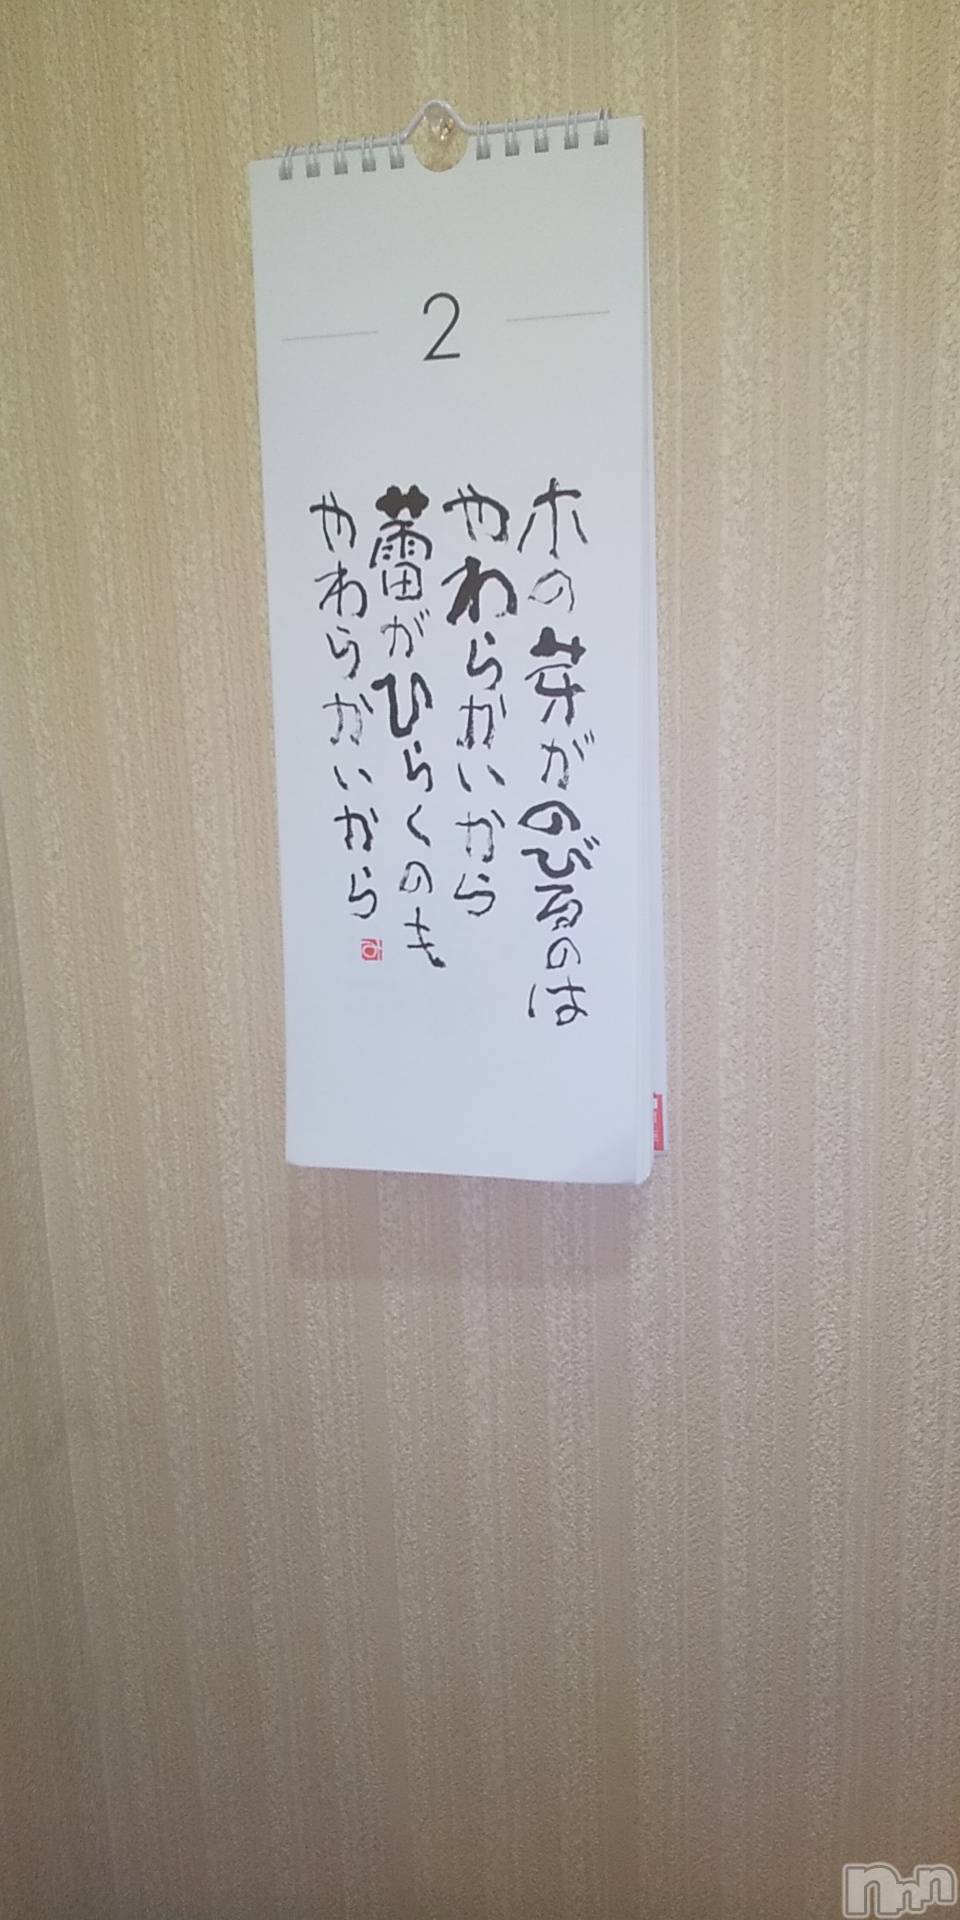 2
木の芽がのびるのは
やわらかいから
蕾がひらくのも
やわらかいから
nnn